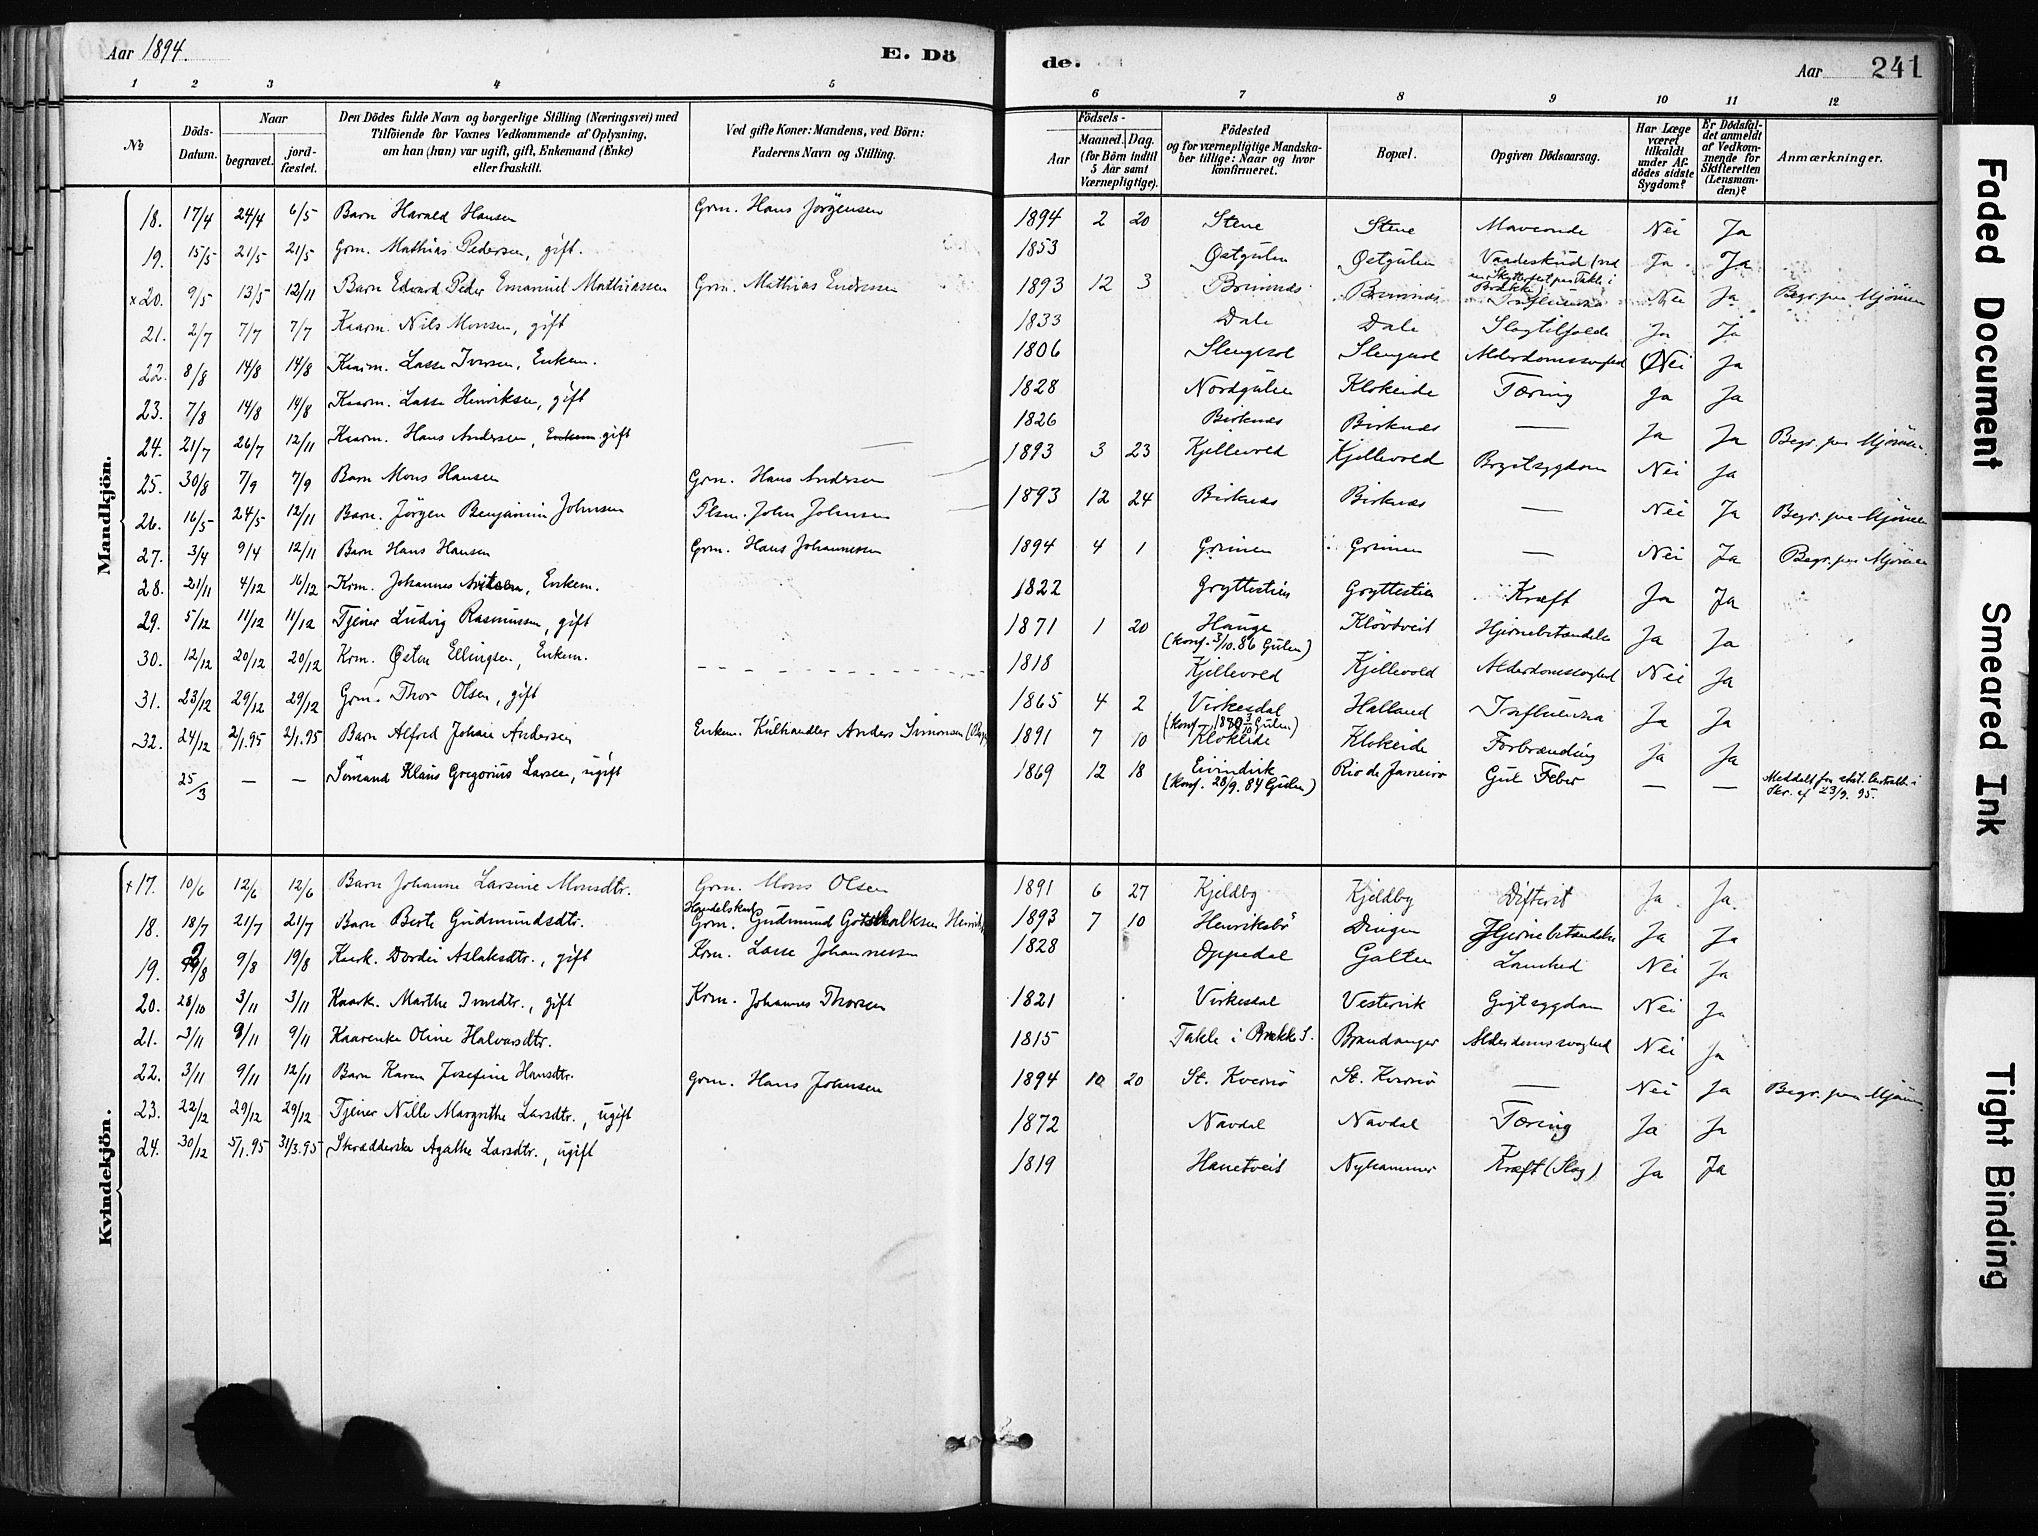 Aar 1894. E. Dö
de. Aar 241
1 2 3 4 5
6 7 8 9 10 11 12
No
Döds-Datum.
Naar
begravet.
jord-fæstet.
Den Dödes fulde Navn og borgerlige Stilling (Næringsvei) med
Tilföiende for Voxnes Vedkommende af Oplysning,
om han (hun) var ugift, gift, Enkemand (Enke)
eller fraskilt.
Ved gifte Koner: Mandens, ved Börn:
Faderens Navn og Stilling.
Födsels-
Aar
Maaned. Dag.
(for Börn indtil
5 Aar samt
Værnepligtige).
Födested
og for værnepligtige Mandska-
ber tillige: Naar og hvor
konfirmeret.
Bopæl.
Opgiven Dödsaarsag.
Har Læge
været
tilkaldt
under Af-
dödes sidste
Sygdom?
Er Dödsfal-
det anmeldt
af Vedkom-
mende for
Skifteretten
(Lensman-
den)?
Anmærkninger.
Mandkjön.
18. 17/4 24/4 6/5 Barn Harald Hansen Grm. Hans Jørgensen 1894 2 20 Stene Stene Maveonde Nei Ja
19. 15/5 21/5 21/5 Grm. Mathias Pedersen, gift. 1853 Østgulen Østgulen Vaadeskud (ved en Skytterfest paa Takle i Brække) Ja Ja
x20. 9/5 13/5 12/11 Barn Edvard Peder Emanuel Mathiassen Grm. Mathias Endresen 1893 12 3 Brimnæs Brimnæs Influenza Nei Ja Begr. paa Mjömen
21. 2/7 7/7 7/7 Kaarm. Nils Monsen, gift 1833 Dale Dale Slagtilfælde Ja Ja
22. 8/8 14/8 14/8 Kaarm. Lasse Iversen, Enkem. 1806 Slengesol Slengesol Alderdomssvaghed Nei Ja
23. 7/8 14/8 14/8 Kaarm. Lasse Henriksen, gift 1828 Nordgulen Klokeide Tæring Ja Ja
24. 21/7 26/7 12/11 Kaarm. Hans Andersen, Enkem. gift 1826 Birknæs Birknæs — Ja Ja Begr. paa Mjömen
25. 30/8 7/9 7/9 Barn Mons Hansen Grm. Hans Andersen 1893 3 23 Kjellevold Kjellevold Brystsygdom Nei Ja
26. 16/5 24/5 12/11 Barn. Jörgen Benjamin Johnsen Plsm. John Johnsen 1893 12 24 Birknæs Birknæs — Nei Ja Begr. paa Mjömen
27. 3/4 9/4 12/11 Barn Hans Hansen Grm. Hans Johannesen 1894 4 1 Grinen Grinen — Nei Ja Begr. paa Mjömen
28. 21/11 4/12 16/12 Krm. Johannes, Enkem. 1822 Gryttestien Gryttestien Kræft Ja Ja
29. 5/12 11/12 11/12 Tjener Ludvig Rasmussen, gift 1871 1 20 Hauge (konf. 3/10.86 Gulen) Klövtveit Hjernebetændelse Ja Ja
30. 12/12 20/12 20/12 Krm. Østen Ellingsen, Enkem. 1818 Kjellevold Kjellevold Alderdomssvaghed Nei Ja
31. 23/12 29/12 29/12 Grm. Thor Olsen, gift 1865 4 2 Virkesdal (konf. Gulen) Halland Influenza Ja Ja
32. 24/12 2/1.95 2/1.95 Barn Alfred Johan Andersen Enkem. Kulhandler Anders Simonsen 1891 7 10 Klokeide Klokeide Forbrænding Ja Ja
25/3 — — Sömand Klaus Gregorius Larsen, ugift 1869 12 18 Eivindvik (konf. 28/9.84 Gulen) Rio de Janeiro Gul Feber — — Meddelt fra stat. Centralb. i Skr. af 23/9.95.
Kvindekjön.
x17. 10/6 12/6 12/6 Barn Johanne Larsine Monsdtr. Grm. Mons Olsen 1891 6 27 Kjeldby Kjeldby Difterit Ja Ja
18. 18/7 21/7 21/7 Barn Berte Gudmundsdtr. Handelskarl Grm. Gudmund Gotskalksen 1893 7 10 Henriksbö Dingen Hjernebetændelse Ja Ja
19. 2/8 9/8 19/8 Kaark. Dordei Aslaksdtr., gift Krm. Lasse Johannessen 1828 Oppedal Galten Lamhed Nei Ja
20. 28/10 3/11 3/11 Kaark. Marthe Iversdtr., gift Krm. Johannes Thorsen 1821 Virkesdal Vestervik Gigtsygdom Nei Ja
21. 3/11 9/11 9/11 Kaarenke Oline Halvarsdtr. 1815 Takle i Brække S. Brandanger Alderdomssvaghed Nei Ja
22. 3/11 9/11 12/11 Barn Karen Josefine Hansdtr. Grm. Hans Johnsen 1894 10 20 St. Kvernö St. Kvernö — Nei Ja Begr. paa Mjömen
23. 22/12 29/12 29/12 Tjener Nille Margrethe Larsdtr., ugift 1872 Nævdal Nævdal Tæring Ja Ja
24. 30/12 5/1.95 31/3.95 Skrædderske Agathe Larsdtr., ugift 1819 Hanetveit Nyhammer Kræft (Slag) Ja Ja
Faded Document
Smeared Ink
Tight Binding